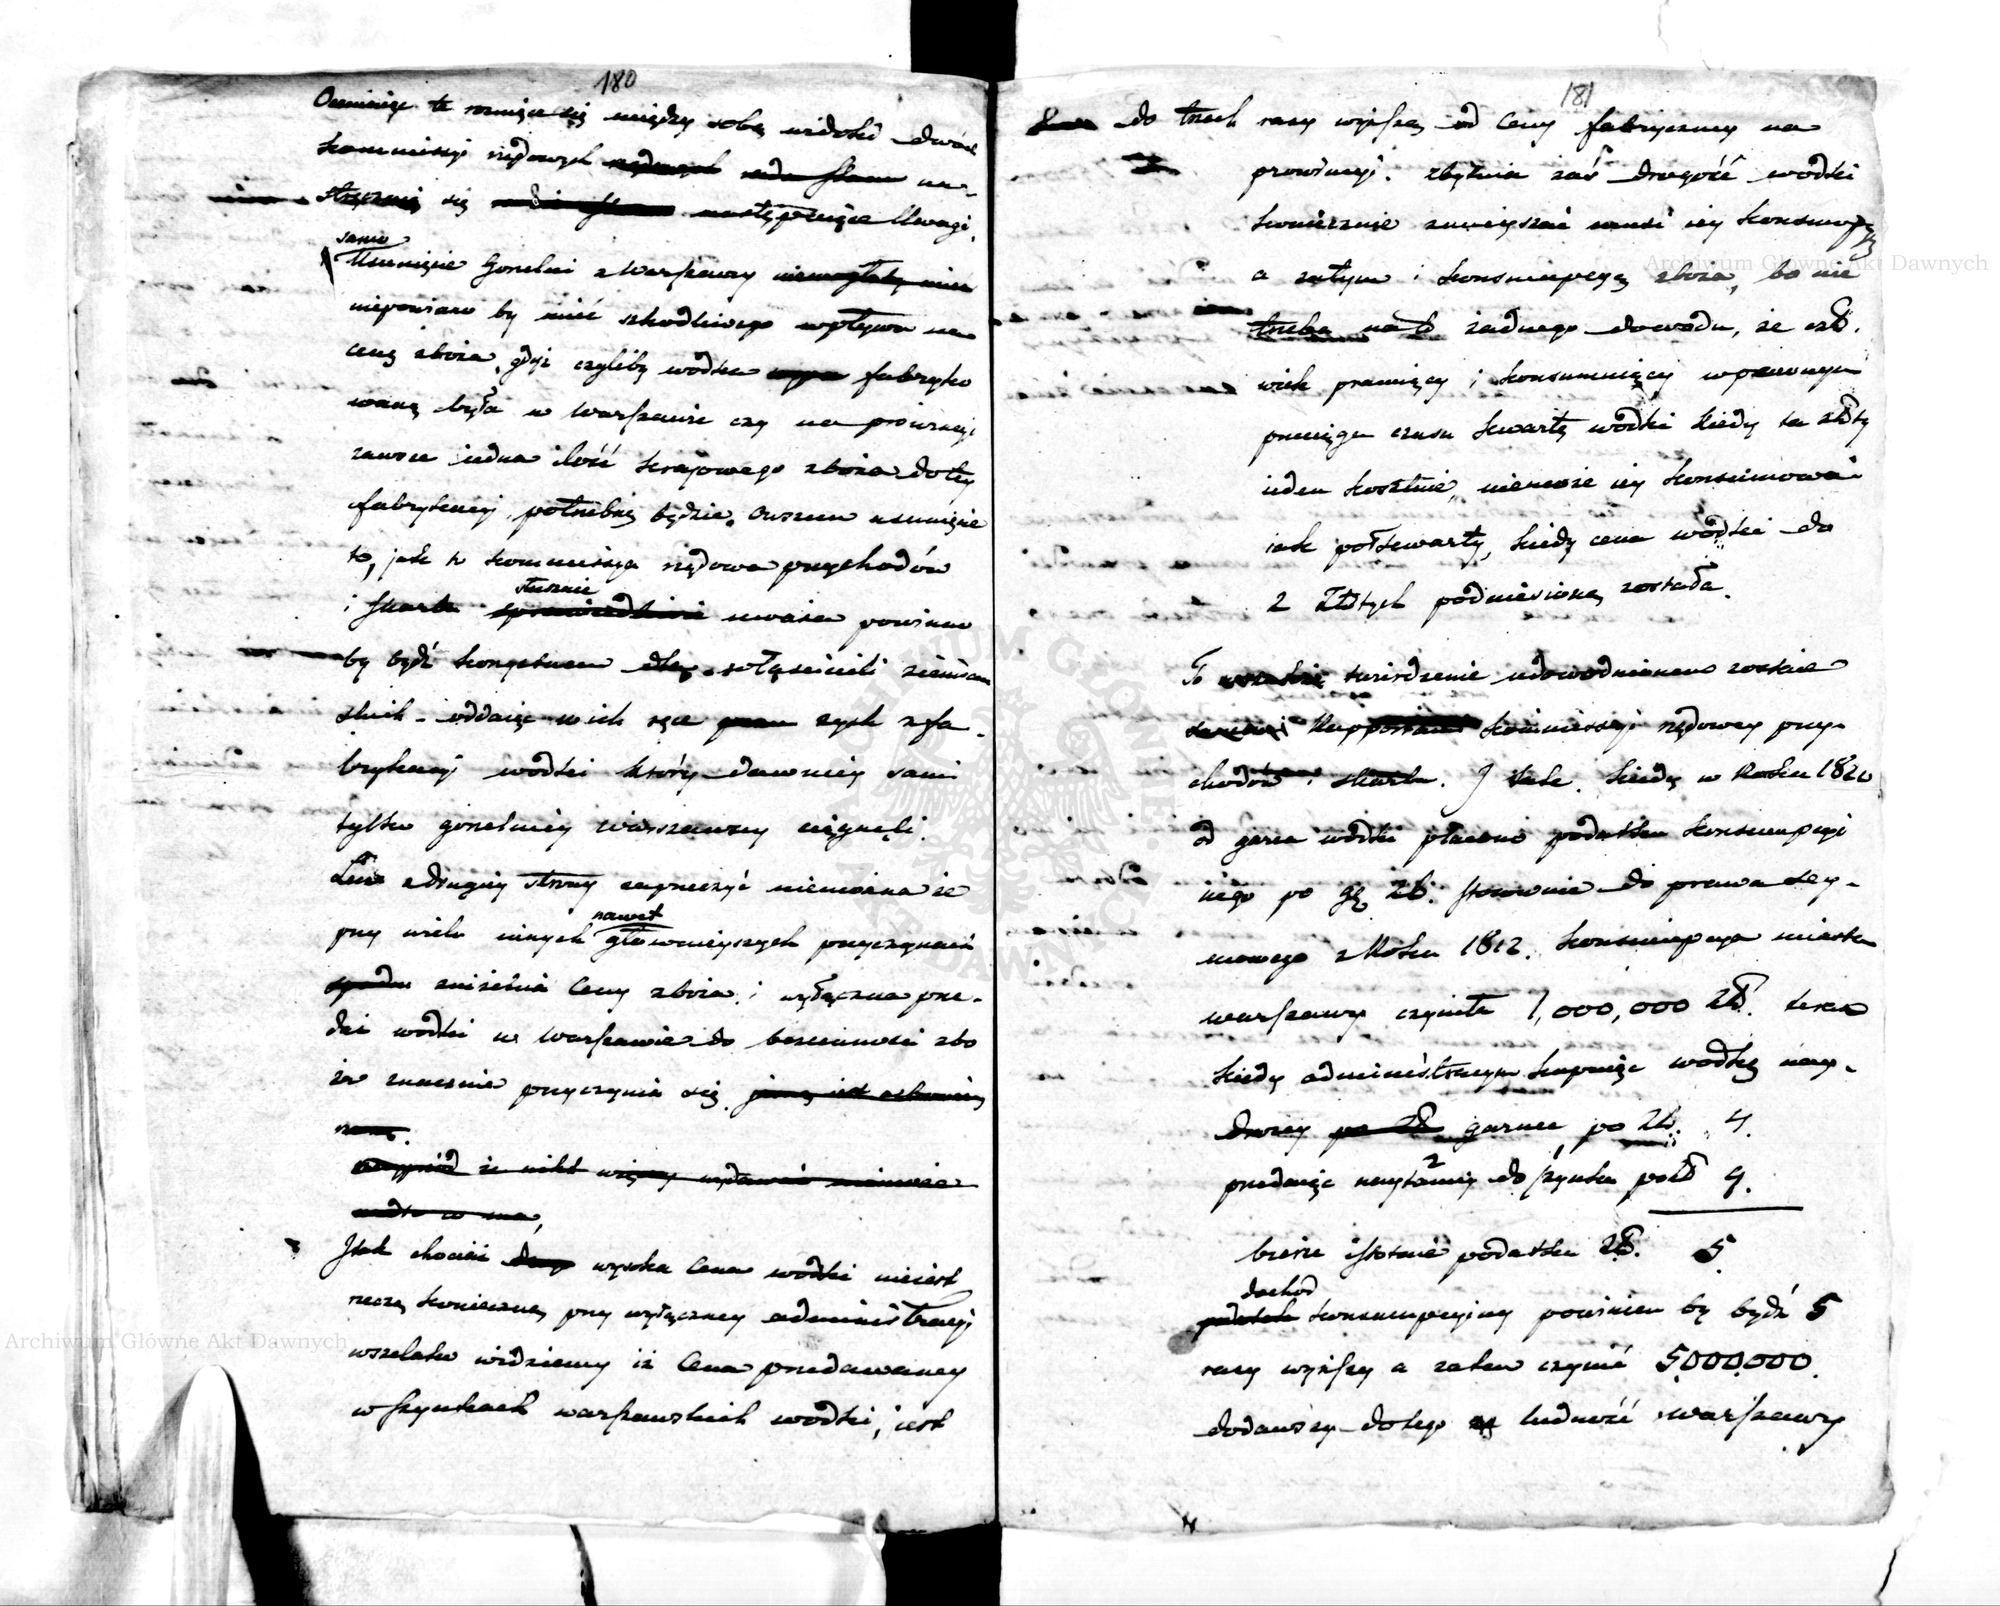 180
Oceniając te rozniące się między sobą widoki dwóch
kommissyi rządowych na-
stręczaią się następuiące Uwagi.
samo
Usunięcie Gorzelni z Warszawy
niepowinno by mieć szkodliwego wpływu na
cenę zboża, gdyż czyliby wodka fabryko
waną była w Warszawie czy na prowincyi
zawsze iedna ilość kraiowego zboża do tey
fabrykacyi potrzebną będzie. Owszem usunięcie
to, jak to kommissya rządowa przychodów
słusznie
i skarbu sprawiedliwie uważa powinno
by bydź korzystnem dla właścicieli ziemiań
skich oddaiąc w ich ręce zysk z fa-
brykacyi wodki który dawniey sami
tylko gorzelnicy warszawscy ciągnęli.
Lecz z drugiey strony zaprzeczyć niemożna że
nawet
przy wielu innych głowniejszych przyczynach
zniżenia Ceny zboża i wyłączna prze-
daż wodki w Warszawie do bezcenności zbo
ża znacznie przyczynia się.
Jak chociaż wysoka Cena wodki nieiest
rzeczą konieczną przy wyłączney administracyi
wszelako widziemy iż Cena przedawaney
w szynkach warszawskich wodki, iest
181
do trzech razy wyższą od Ceny fabryczney na
prowincyi. zbytnia zaś drogość wodki
koniecznie zmnieyszać musi iey konsumpcyą
a zatym i konsumpcyą zboża, bo nie
trzeba na to żadnego dowodu, że czło
wiek pracuiący i konsumuiący w pewnym
przeciągu czasu kwartę wodki kiedy ta złoty
ieden kosztuie, niemoże iey konsumować
iak połkwarty, kiedy cena wodki do
2 złotych podniesioną została.
To twierdzenie udowodnionem zostaie
Rapportami kommissyi rządowey przy-
chodów i skarbu. I tak. kiedy w Roku 1820
od garca wodki płacono podatku konsumpcyi
nego po zł. stosownie do prawa sey-
mowego z Roku 1812. konsumpcya miasta
warszawy czyniła 1,000,000 zł. teraz
kiedy administracya kupuiąc wodkę nay-
drożey garniec po zł. 4.
przedaiąc naytaniey do szynku po zł 9.
bierze istotnie podatku zł. 5
dochod
podatek konsumpcyiny powinien by bydź 5
razy wyższy a zatem czynić 5,000,000.
dodawszy do tego ludność warszawy